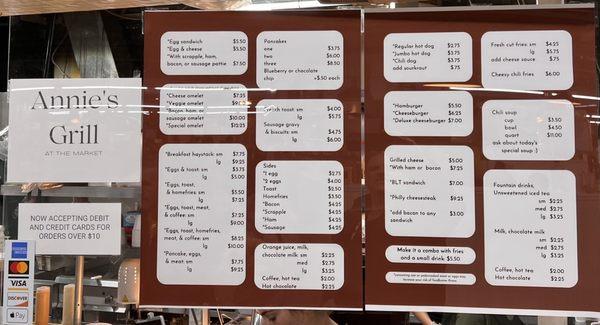 Annie's
Grill
AT THE MARKET
NOW ACCEPTING DEBIT
AND CREDIT CARDS FOR
ORDERS OVER $10
VISA
DISCOVER
Pay
*Egg sandwich $5.50
*Egg & cheese $5.50
*With scrapple, ham,
bacon, or sausage pattie $7.50
*Cheese omelet $7.25
*Veggie omelet
*Bacon, ham, or
sausage omelet $10.00
*Special omelet $12.25
*Breakfast haystack: sm $7.75
lg $9.25
*Eggs & toast: sm $3.75
lg $5.00
*Eggs, toast,
& homefries: sm $5.50
lg $7.25
*Eggs, toast, meat,
& coffee: sm $7.25
lg $9.00
*Eggs, toast, homefries,
meat, & coffee: sm $8.25
lg $10.00
*Pancake, eggs,
& meat: sm $7.75
lg $9.25
Pancakes
one $3.75
two $6.00
three $8.50
Blueberry or chocolate
chip +$.50 each
French toast: sm $4.00
lg $5.75
Sausage gravy
& biscuits: sm $4.75
lg $6.00
Sides
*1 egg $2.75
*2 eggs $4.00
Toast $2.50
Homefries $3.50
*Bacon $4.25
*Scrapple $4.25
*Ham $4.25
*Sausage $4.25
Orange juice, milk,
chocolate milk: sm $2.25
med $2.75
lg $3.25
Coffee, hot tea $2.00
Hot chocolate $2.25
*Regular hot dog $2.75
*Jumbo hot dog $3.75
*Chili dog $3.75
add sourkraut $.75
*Hamburger $5.50
*Cheeseburger $6.25
*Deluxe cheeseburger $7.00
Grilled cheese $5.00
*With ham or bacon $7.25
*BLT sandwich $7.00
*Philly cheesesteak $9.25
*add bacon to any $3.00
Make it a combo with fries
and a small drink $5.50
*consuming raw or undercooked meat or eggs may
increase the risk of foodborne illness
Fresh cut fries: sm $4.25
lg $5.75
add cheese sauce $.75
Cheesy chili fries $6.00
Chili soup
cup $3.50
bowl $4.50
quart $11.00
ask about today's
special soup :)
Fountain drinks,
Unsweetened iced tea
sm $2.25
med $2.75
lg $3.25
Milk, chocolate milk
sm $2.25
med $2.75
lg $3.25
Coffee, hot tea $2.00
Hot chocolate $2.25